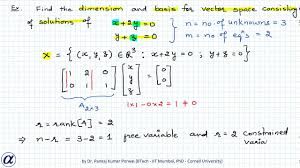 Ex. Find the dimension and basis for vector space consisting
of solutions of x + 2y = 0 } n = no of unknowns = 3
y + z = 0 } m = no of eqns = 2
X = { (x, y, z) ∈ ℝ³ : x + 2y = 0 ; y + z = 0 }
[1 2 0; 0 1 1] [x; y; z] = [0; 0]
A₂ₓ₃ 1×1 - 0×2 = 1 ≠ 0
r = rank[A] = 2
⇒ n-r = 3-2 = 1 free variable and r = 2 constrained
varia
by Dr. Pankaj Porwal (BTech - IIT Mumbai, PhD - Cornell University)